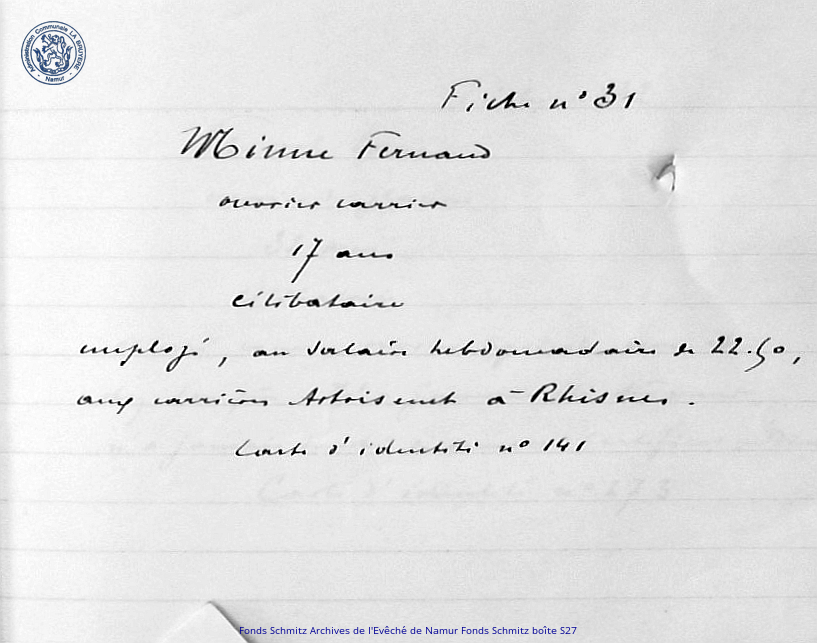 Administration Communale LA BRUYERE
Namur
Fiche n° 31
Minne Fernand
ouvrier carrier
17 ans
célibataire
employé, au salaire hebdomadaire de 22.50,
aux carrières Artoisenet à Rhisnes.
Carte d'identité n° 141
Carte d'identité n° 273
Fonds Schmitz Archives de l'Evêché de Namur Fonds Schmitz boîte S27